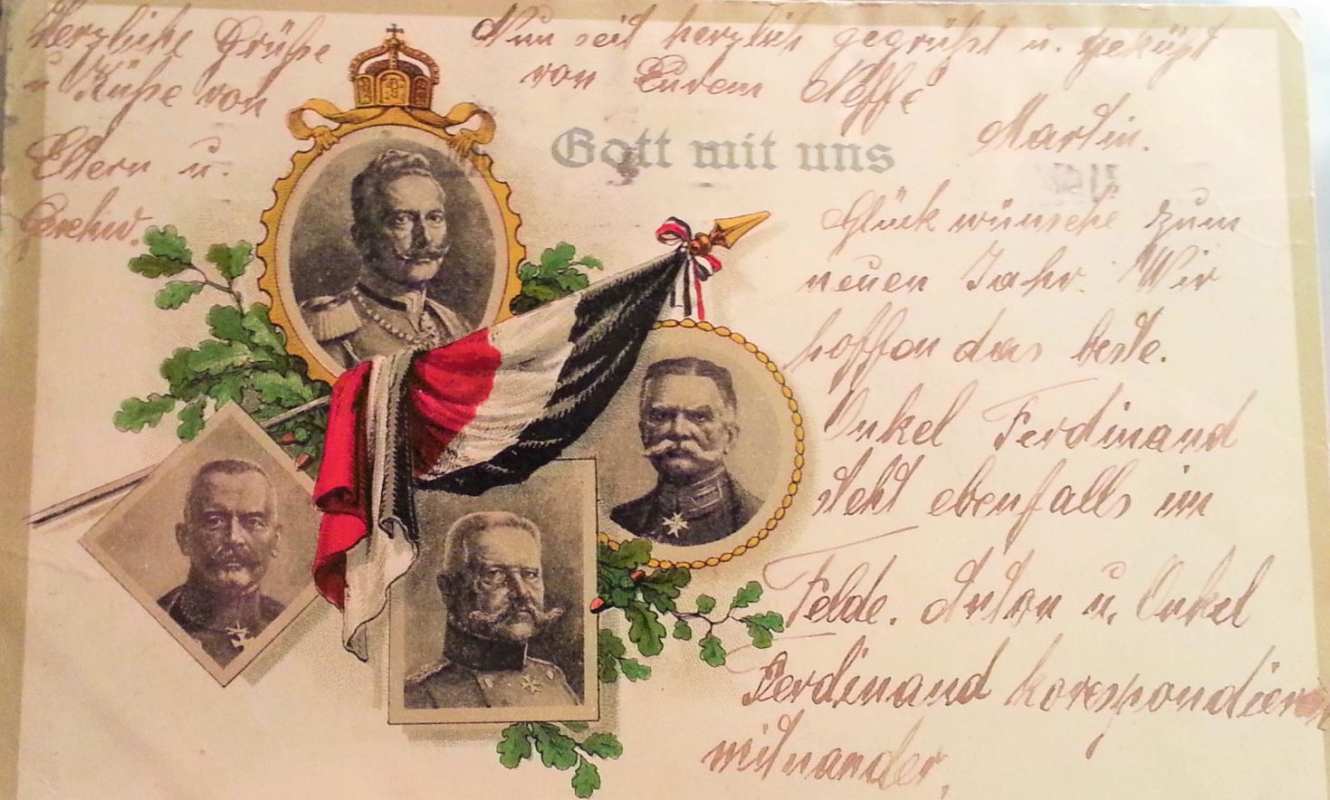 Herzliche Grüße
u Küße von
Eltern u.
Geschw.
Nun seit herzlich gegrüßt u. geküßt
von Eurem Neffe
Martin.
Gott mit uns
Glückwünsche zum
neuen Jahr. Wir
hoffen das beste.
Onkel Ferdinand
steht ebenfalls im
Felde. Anton u. Onkel
Ferdinand korespondieren
mitnander,